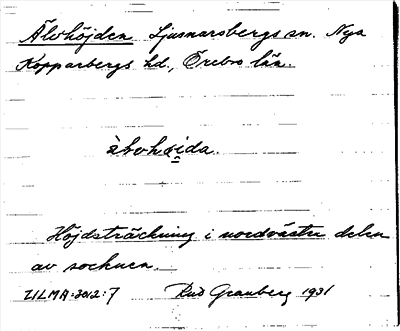 Älvhöjden Ljusnarsbergs sn. Nya
Kopparbergs hd., Örebro län.
Höjdsträckning i nordvästra delen
av socknen.
ULMA:3012:7 Rud Granberg 1931